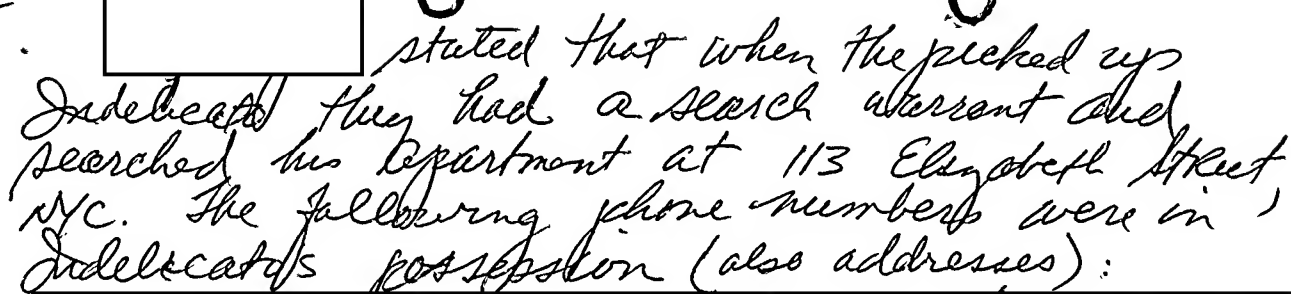 stated that when the picked up
Indelicato they had a search warrant and
searched his apartment at 113 Elizabeth Street,
NYC. The following phone numbers were in
Indelicato's possession (also addresses):